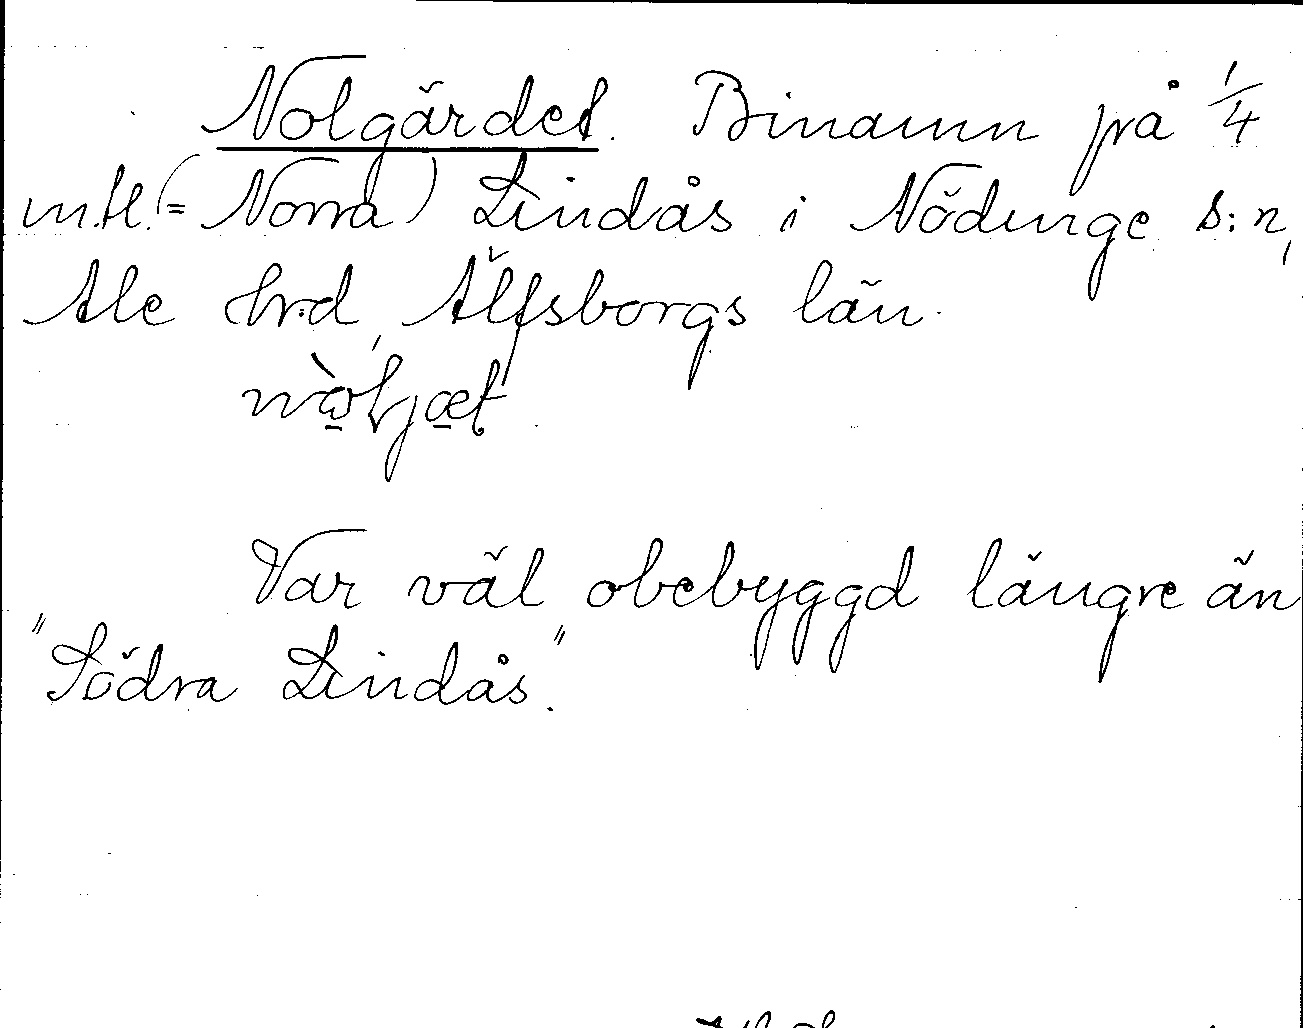 Nolgärdet. Binamn på 1/4
mtl. (= Norra) Lindås i Nödinge s:n,
Ale hrd, Älfsborgs län.
Var väl obebyggd längre än
"Södra Lindås".